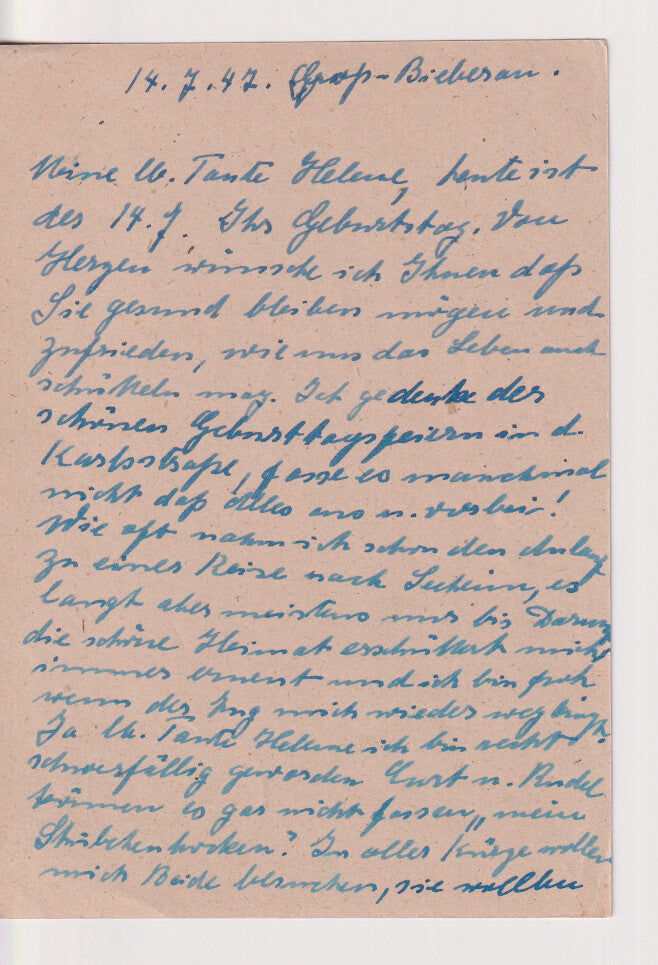 14.7.47. Groß-Bieberau.
Meine lb. Tante Helene, heute ist
der 14.7. Ihr Geburtstag. Von
Herzen wünsche ich Ihnen daß
Sie gesund bleiben mögen und
zufrieden, wie uns das Leben auch
schütteln mag. Ich gedenke der
schönen Geburtstagsfeiern in d.
Karlsstraße, fasse es manchmal
nicht daß alles aus u. vorbei!
Wie oft nahm ich schon den Anlauf
zu einer Reise nach Seeheim, es
langt aber meistens nur bis Darm
die schöne Heimat erschüttert mich
immer erneut und ich bin froh
wenn der Zug mich wieder wegbringt.
Ja lb. Tante Helene ich bin recht
schwerfällig geworden Curt u. Rudel
können es gar nicht fassen „mein
Stübchenhocken". In aller Kürze wollen
mich Beide besuchen, sie wollten